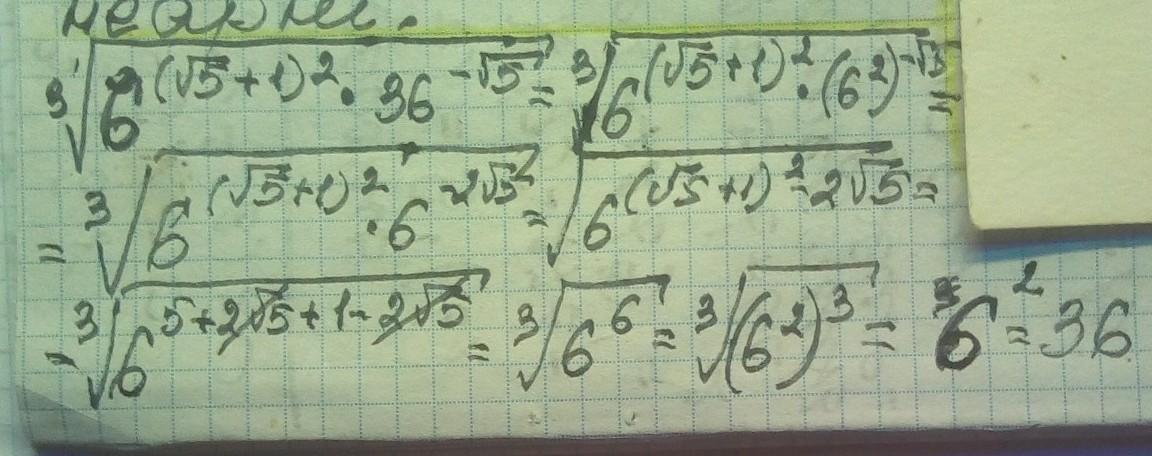 ∛(6^((√5+1)²) · 36^(-√5)) = ∛(6^((√5+1)²) · (6²)^(-√5)) =
= ∛(6^((√5+1)²) · 6^(-2√5)) = √(6^((√5+1)²-2√5)) =
= ∛(6^(5+2√5+1-2√5)) = ∛(6⁶) = ∛((6²)³) = 6² = 36